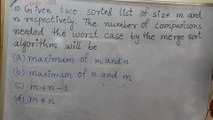 10. Given two sorted list of size m and
n respectively. The number of comparisons
needed the worst case by the merge sort
algorithm will be
(a) maximum of m and n
(b) maximum of n and m
(c) m + n - 1
(d) m + n